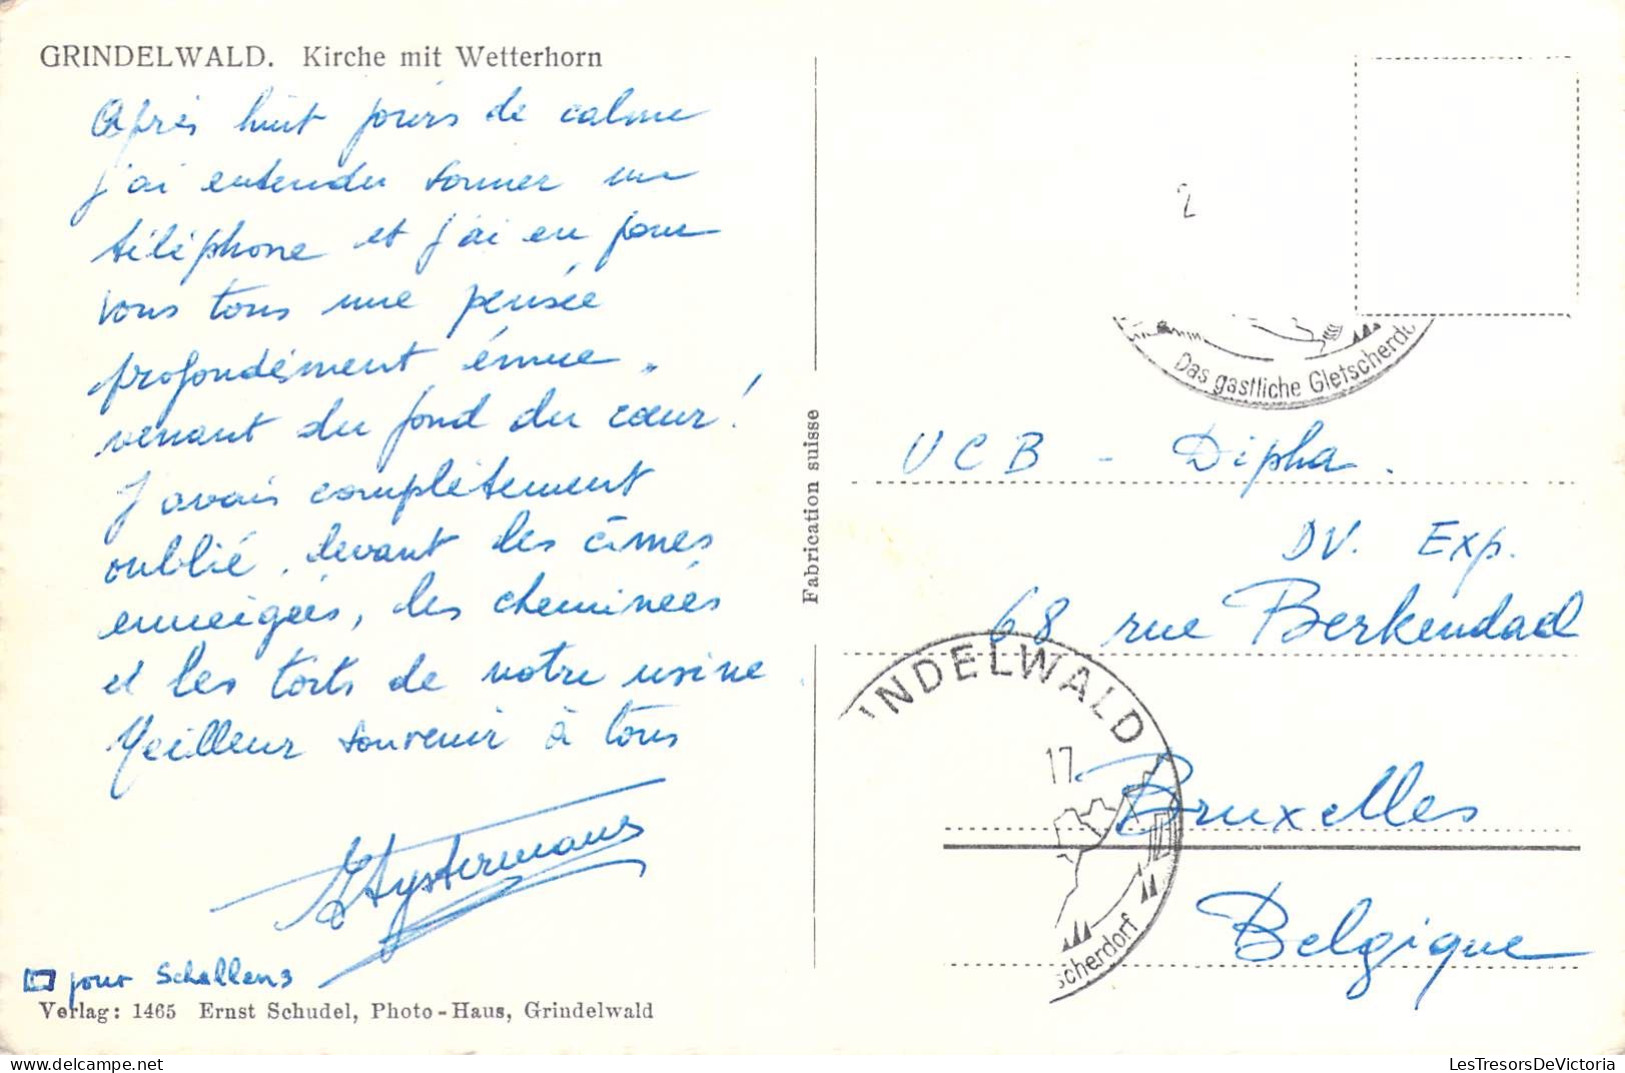 GRINDELWALD. Kirche mit Wetterhorn
Après huit jours de calme
j'ai entendu sonner un
téléphone et j'ai eu pour
vous tous une pensée
profondément émue,
venant du fond du cœur!
J'avais complètement
oublié, devant les cîmes
enneigées, les cheminées
et les toits de notre usine.
Meilleur souvenir à tous
pour Schellens
Verlag: 1465 Ernst Schudel, Photo-Haus, Grindelwald
Fabrication suisse
2
Das gastliche Gletscherdo
UCB - Dipha.
DV. Exp.
68 rue Berkendael
Bruxelles
Belgique
INDELWALD
17.
scherdorf
LesTresorsDeVictoria